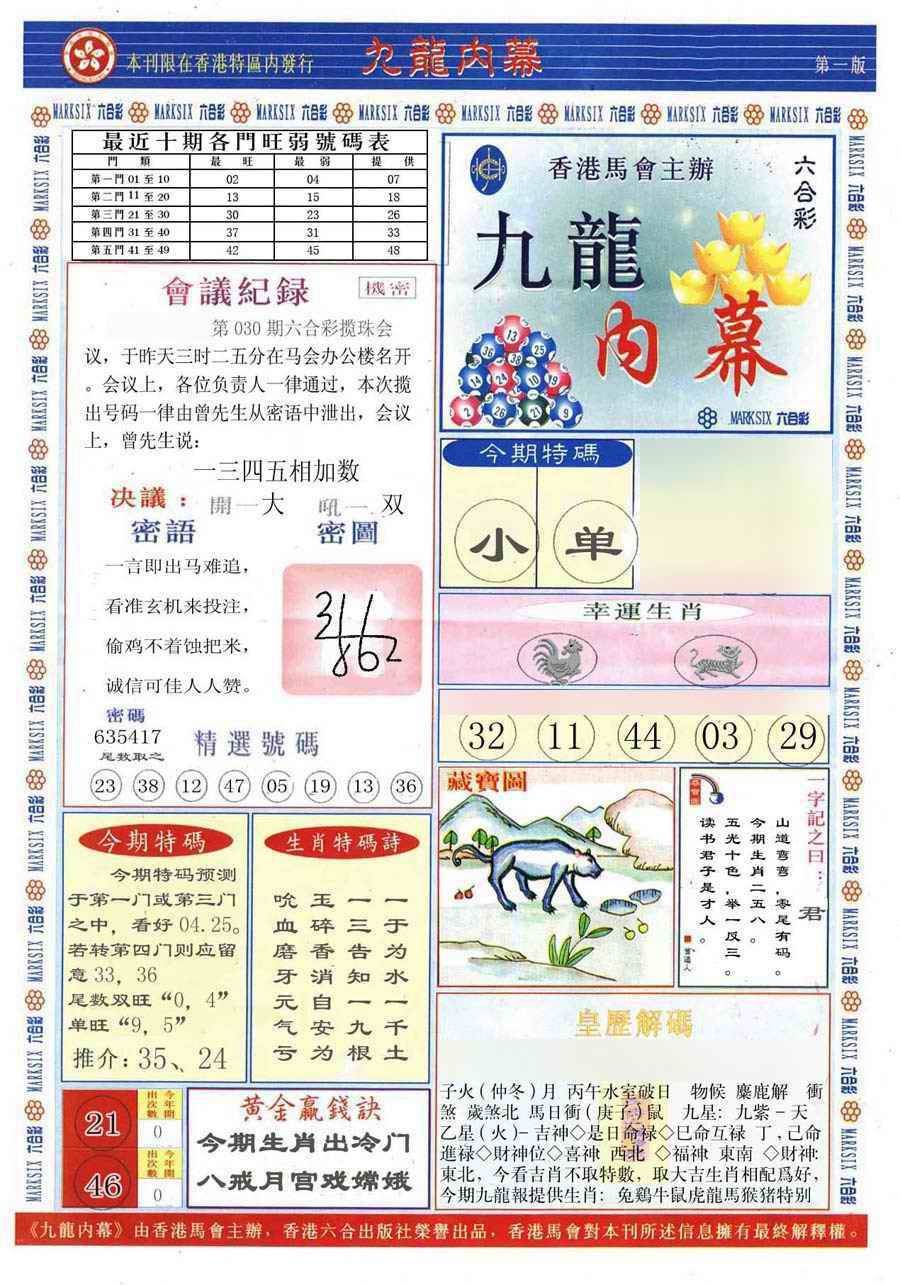 本刊限在香港特區内發行
九龍内幕
第一版
MARKSIX 六合彩 MARKSIX 六合彩 MARKSIX 六合彩 MARKSIX 六合彩 MARKSIX 六合彩 MARKSIX 六合彩 MARKSIX 六合彩 MARKSIX 六合彩
最近十期各門旺弱號碼表
門 類 最 旺 最 弱 提 供
第一門 01 至 10 02 04 07
第二門 11 至 20 13 15 18
第三門 21 至 30 30 23 26
第四門 31 至 40 37 31 33
第五門 41 至 49 42 45 48
香港馬會主辦
六合彩
九龍
内幕
MARKSIX 六合彩
會議紀録
機密
第 030 期六合彩揽珠会
议，于昨天三时二五分在马会办公楼名开
。会议上，各位负责人一律通过，本次揽
出号码一律由曾先生从密语中泄出，会议
上，曾先生说：
一三四五相加数
决議：開一大 吼一 双
密語 密圖
一言即出马难追，
看准玄机来投注，
偷鸡不着蚀把米，
诚信可佳人人赞。
密碼
635417
尾数取之
精選號碼
23 38 12 47 05 19 13 36
今期特碼
小 单
幸運生肖
32 11 44 03 29
今期特碼
今期特码预测
于第一门或第三门
之中，看好 04.25。
若转第四门则应留
意 33，36
尾数双旺“0，4”
单旺“9，5”
推介：35、24
生肖特碼詩
一于为水一千土
一三告知一九根
玉碎香消自安为
吮血磨牙元气亏
藏寶圖
一字記之曰：君
山道弯弯，零尾有码。
今期生肖二五八。
五光十色，举一反三。
读书君子是才人。
皇歷解碼
子火（仲冬）月 丙午水室破日 物候 麋鹿解 衝
煞 歲煞北 馬日衝（庚子）鼠 九星：九紫－天
乙星（火）－吉神◇是日命禄◇巳命互禄 丁，己命
進禄◇財神位◇喜神 西北 ◇福神 東南 ◇財神：
東北，今看吉肖不取特數，取大吉生肖相配爲好，
今期九龍報提供生肖：兔鷄牛鼠虎龍馬猴猪特别
21 今年開出次數 0
46 今年開出次數 0
黄金贏錢訣
今期生肖出冷门
八戒月宫戏嫦娥
《九龍内幕》由香港馬會主辦，香港六合出版社榮譽出品，香港馬會對本刊所述信息擁有最終解釋權。